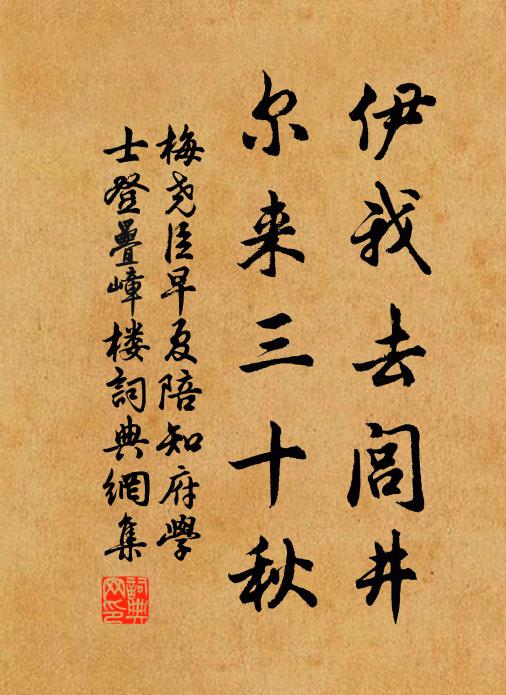 伊我去闾井
尔来三十秋
梅尧臣早夏陪知府学
士登疊嶂楼詞典網集
詞典网印